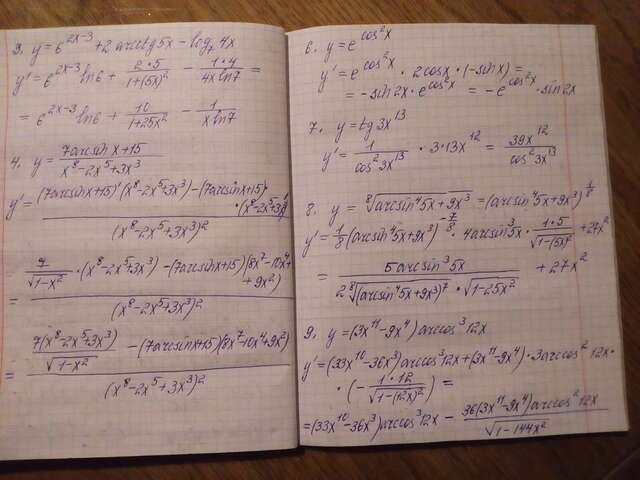 3. y = 6^(2x-3) + 2 arctg 5x - log₇ 4x
y' = 6^(2x-3) ln6 + (2·5)/(1+(5x)²) - (1·4)/(4x ln7) =
= 6^(2x-3) ln6 + 10/(1+25x²) - 1/(x ln7)
4. y = (7arcsin x+15)/(x⁸-2x⁵+3x³)
y' = ((7arcsin x+15)'(x⁸-2x⁵+3x³)-(7arcsin x+15)·
·(x⁸-2x⁵+3x³)')/(x⁸-2x⁵+3x³)²
= (7/√(1-x²) ·(x⁸-2x⁵+3x³)-(7arcsin x+15)(8x⁷-10x⁴+
+9x²))/(x⁸-2x⁵+3x³)²
= (7(x⁸-2x⁵+3x³)/√(1-x²) -(7arcsin x+15)(8x⁷-10x⁴+9x²))/(x⁸-2x⁵+3x³)²
6. y = e^(cos²x)
y' = e^(cos²x) · 2cosx · (-sinx) =
= -sin2x · e^(cos²x) = -e^(cos²x) · sin2x
7. y = tg 3x¹³
y' = 1/(cos²3x¹³) · 3·13x¹² = 39x¹²/(cos²3x¹³)
8. y = ⁸√(arcsin⁴5x+9x³) = (arcsin⁴5x+9x³)^(1/8)
y' = 1/8 (arcsin⁴5x+9x³)^(-7/8) · 4arcsin³5x · (1·5)/√(1-(5x)²) + 27x²
= 5arcsin³5x/(2 ⁸√((arcsin⁴5x+9x³)⁷) · √(1-25x²)) + 27x²
9. y = (3x¹¹-9x⁴)arccos³12x
y' = (33x¹⁰-36x³)arccos³12x+(3x¹¹-9x⁴)·3arccos²12x·
·(- (1·12)/√(1-(12x)²)) =
= (33x¹⁰-36x³)arccos³12x - 36(3x¹¹-9x⁴)arccos²12x/√(1-144x²)